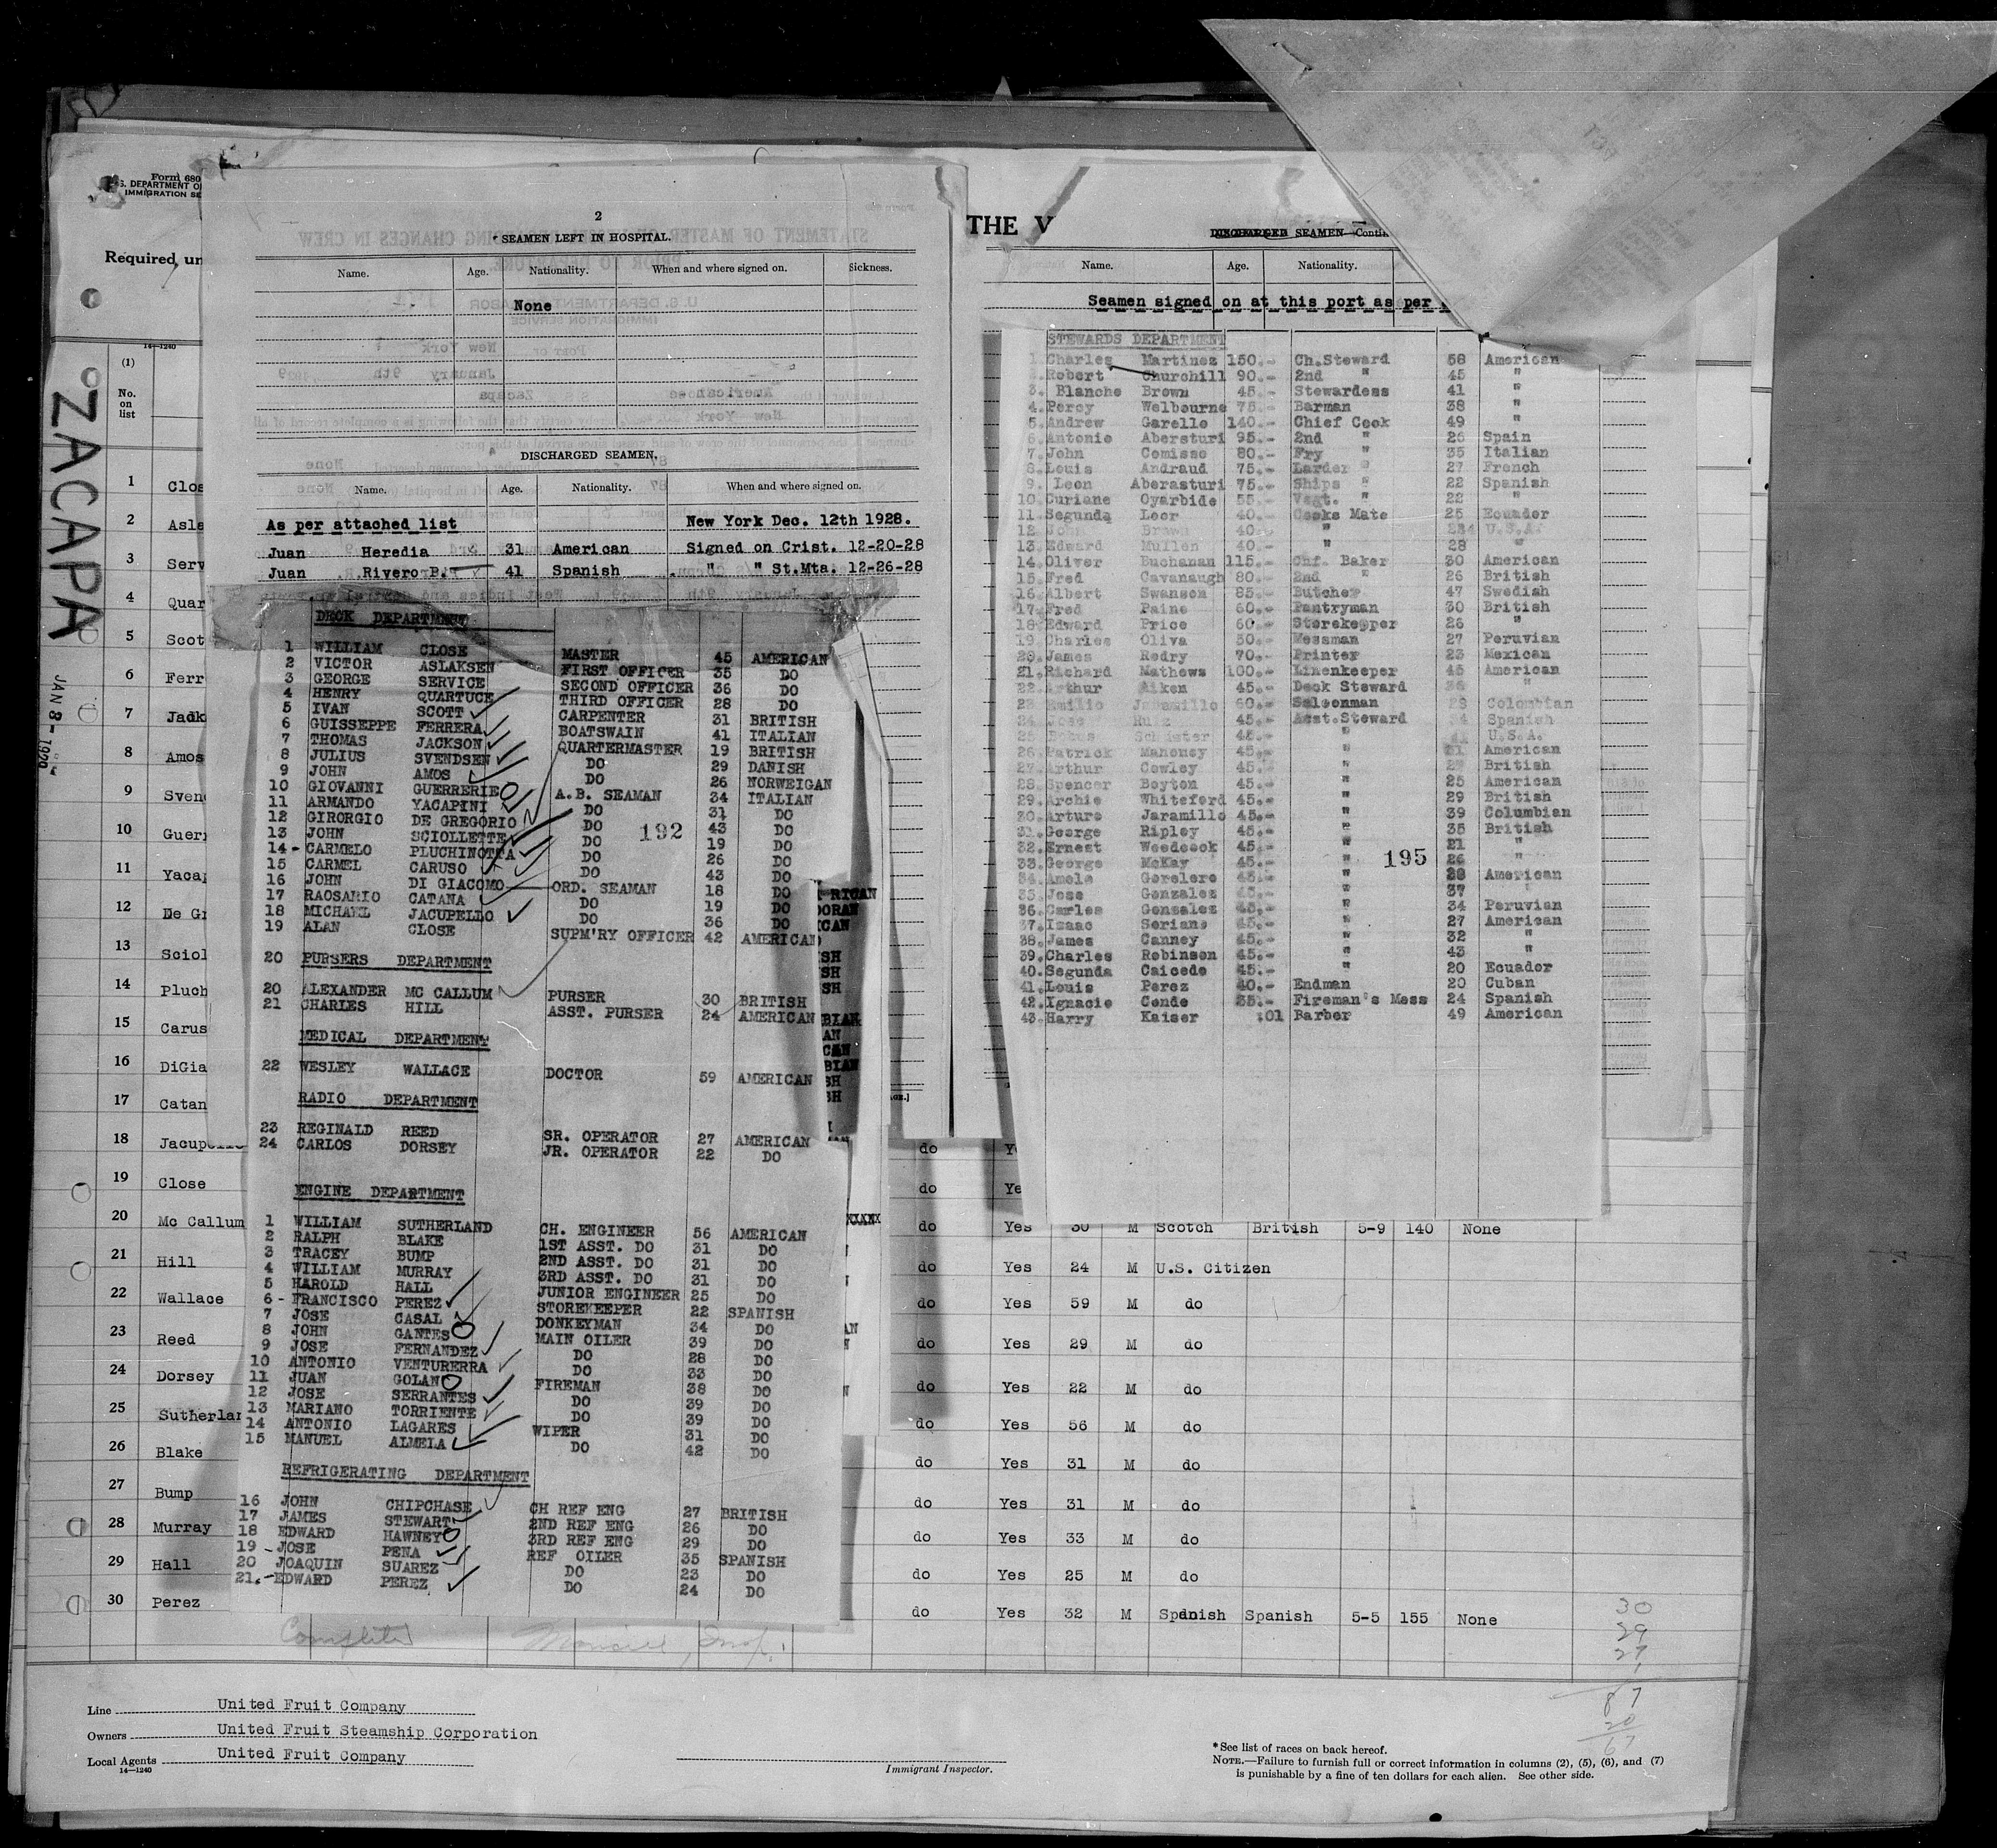 Form 680
S. DEPARTMENT OF
IMMIGRATION SE
Required, un
14—1240
(1)
No.
on
list
ZACAPA
JAN 8 - 1929
1 Clos
2 Asla
3 Serv
4 Quar
5 Scot
6 Ferr
7 Jadk
8 Amos
9 Sven
10 Guer
11 Yaca
12 De Gr
13 Sciol
14 Pluch
15 Carus
16 DiGia
17 Catan
18 Jacupello do
19 Close do Ye
20 Mc Callum do Yes 30 M Scotch British 5-9 140 None
21 Hill do Yes 24 M U.S. Citizen
22 Wallace do Yes 59 M do
23 Reed do Yes 29 M do
24 Dorsey do Yes 22 M do
25 Sutherlan do Yes 56 M do
26 Blake do Yes 31 M do
27 Bump do Yes 31 M do
28 Murray do Yes 33 M do
29 Hall do Yes 25 M do
30 Perez do Yes 32 M Spanish Spanish 5-5 155 None
2
SEAMEN LEFT IN HOSPITAL.
Name. Age. Nationality. When and where signed on. Sickness.
None
DISCHARGED SEAMEN.
Name. Age. Nationality. When and where signed on.
As per attached list New York Dec. 12th 1928.
Juan Heredia 31 American Signed on Crist. 12-20-28
Juan Rivero B. 41 Spanish " " St.Mta. 12-26-28
DECK DEPARTMENT
1 WILLIAM CLOSE MASTER 45 AMERICAN
2 VICTOR ASLAKSEN FIRST OFFICER 35 DO
3 GEORGE SERVICE SECOND OFFICER 36 DO
4 HENRY QUARTUCE THIRD OFFICER 28 DO
5 IVAN SCOTT CARPENTER 31 BRITISH
6 GUISSEPPE FERRERA BOATSWAIN 41 ITALIAN
7 THOMAS JACKSON QUARTERMASTER 19 BRITISH
8 JULIUS SVENDSEN DO 29 DANISH
9 JOHN AMOS DO 26 NORWEIGAN
10 GIOVANNI GUERRERIE A.B. SEAMAN 34 ITALIAN
11 ARMANDO YACAPINI DO 31 DO
12 GIRORGIO DE GREGORIO DO 43 DO
13 JOHN SCIOLLETTE DO 19 DO
14- CARMELO PLUCHINOTTA DO 26 DO
15 CARMEL CARUSO DO 43 DO
16 JOHN DI GIACOMO ORD. SEAMAN 18 DO
17 RAOSARIO CATANA DO 19 DO
18 MICHAEL JACUPELLO DO 36 DO
19 ALAN CLOSE SUPM'RY OFFICER 42 AMERICAN
192
20 PURSERS DEPARTMENT
20 ALEXANDER MC CALLUM PURSER 30 BRITISH
21 CHARLES HILL ASST. PURSER 24 AMERICAN
MEDICAL DEPARTMENT
22 WESLEY WALLACE DOCTOR 59 AMERICAN
RADIO DEPARTMENT
23 REGINALD REED SR. OPERATOR 27 AMERICAN
24 CARLOS DORSEY JR. OPERATOR 22 DO
ENGINE DEPARTMENT
1 WILLIAM SUTHERLAND CH. ENGINEER 56 AMERICAN
2 RALPH BLAKE 1ST ASST. DO 31 DO
3 TRACEY BUMP 2ND ASST. DO 31 DO
4 WILLIAM MURRAY 3RD ASST. DO 31 DO
5 HAROLD HALL JUNIOR ENGINEER 25 DO
6 - FRANCISCO PEREZ STOREKEEPER 22 SPANISH
7 JOSE CASAL DONKEYMAN 34 DO
8 JOHN GANTES MAIN OILER 39 DO
9 JOSE FERNANDEZ DO 28 DO
10 ANTONIO VENTURERRA DO 33 DO
11 JUAN GOLAN FIREMAN 38 DO
12 JOSE SERRANTES DO 39 DO
13 MARIANO TORRIENTE DO 39 DO
14 ANTONIO LAGARES WIPER 31 DO
15 MANUEL ALMELA DO 42 DO
REFRIGERATING DEPARTMENT
16 JOHN CHIPCHASE CH REF ENG 27 BRITISH
17 JAMES STEWART 2ND REF ENG 26 DO
18 EDWARD HAWNEY 3RD REF ENG 29 DO
19 - JOSE PENA REF OILER 35 SPANISH
20 JOAQUIN SUAREZ DO 23 DO
21.- EDWARD PEREZ DO 24 DO
THE V
DISCHARGED SEAMEN—Contin
Name. Age. Nationality.
Seamen signed on at this port as per
STEWARDS DEPARTMENT
1 Charles Martinez 150.- Ch.Steward 58 American
2. Robert Churchill 90.- 2nd " 45 "
3. Blanche Brown 45.- Stewardess 41 "
4. Percy Welbourne 75.- Barman 38 "
5. Andrew Garello 140.- Chief Cook 49 "
6. Antonio Abersturi 95.- 2nd " 26 Spain
7. John Comisso 80.- Fry " 35 Italian
8. Louis Andraud 75.- Larder " 27 French
9. Leon Aberasturi 75.- Ships " 22 Spanish
10. Curiane Oyarbide 55.- Vegt. " 22 "
11. Segunda Loor 40.- Cooks Mate 25 Ecuador
12 John Brown 40.- " U.S.A.
13. Edward Mullen 40.- " 28 "
14. Oliver Buchanan 115.- Chf. Baker 30 American
15. Fred Cavanaugh 80.- 2nd " 26 British
16. Albert Swanson 85.- Butcher 47 Swedish
17. Fred Paine 60.- Pantryman 30 British
18. Edward Price 60.- Storekeeper 26 "
19. Charles Oliva 50.- Messman 27 Peruvian
20. James Redry 70.- Printer 23 Mexican
21. Richard Mathews 100.- Linenkeeper 45 American
22. Arthur Aiken 45.- Deck Steward "
23 Emilio Jaramillo 60.- Saloonman 28 Colombian
24. Jose Ruiz 45.- Asst.Steward 34 Spanish
25 Schlister 45.- " U.S.A.
26. Patrick Mahoney 45.- " 31 American
27. Arthur Cowley 45.- " British
28. Spencer Boyton 45.- " 25 American
29. Archie Whiteford 45.- " 29 British
30. Arture Jaramillo 45.- " 39 Columbian
31. George Ripley 45.- " 35 British
32. Ernest Woodcock 45.- " 21 "
33. George McKay 45.- " 26 "
34. Amelo Gorelero 45.- " 28 American
35. Jose Gonzalez 45.- " 37 "
36. Carles Gonzalez 45.- " 34 Peruvian
37. Isaac Soriano 45.- " 27 American
38. James Canney 45.- " 32 "
39. Charles Robinson 45.- " 43 "
40. Segunda Caicedo 45.- " 20 Ecuador
41. Louis Perez 40.- Endman 20 Cuban
42. Ignacio Conde 35.- Fireman's Mess 24 Spanish
43. Harry Kaiser :01 Barber 49 American
195
30
29
27
1
87
20
67
Line United Fruit Company
Owners United Fruit Steamship Corporation
Local Agents United Fruit Company
14—1240
Immigrant Inspector.
* See list of races on back hereof.
NOTE.—Failure to furnish full or correct information in columns (2), (5), (6), and (7)
is punishable by a fine of ten dollars for each alien. See other side.